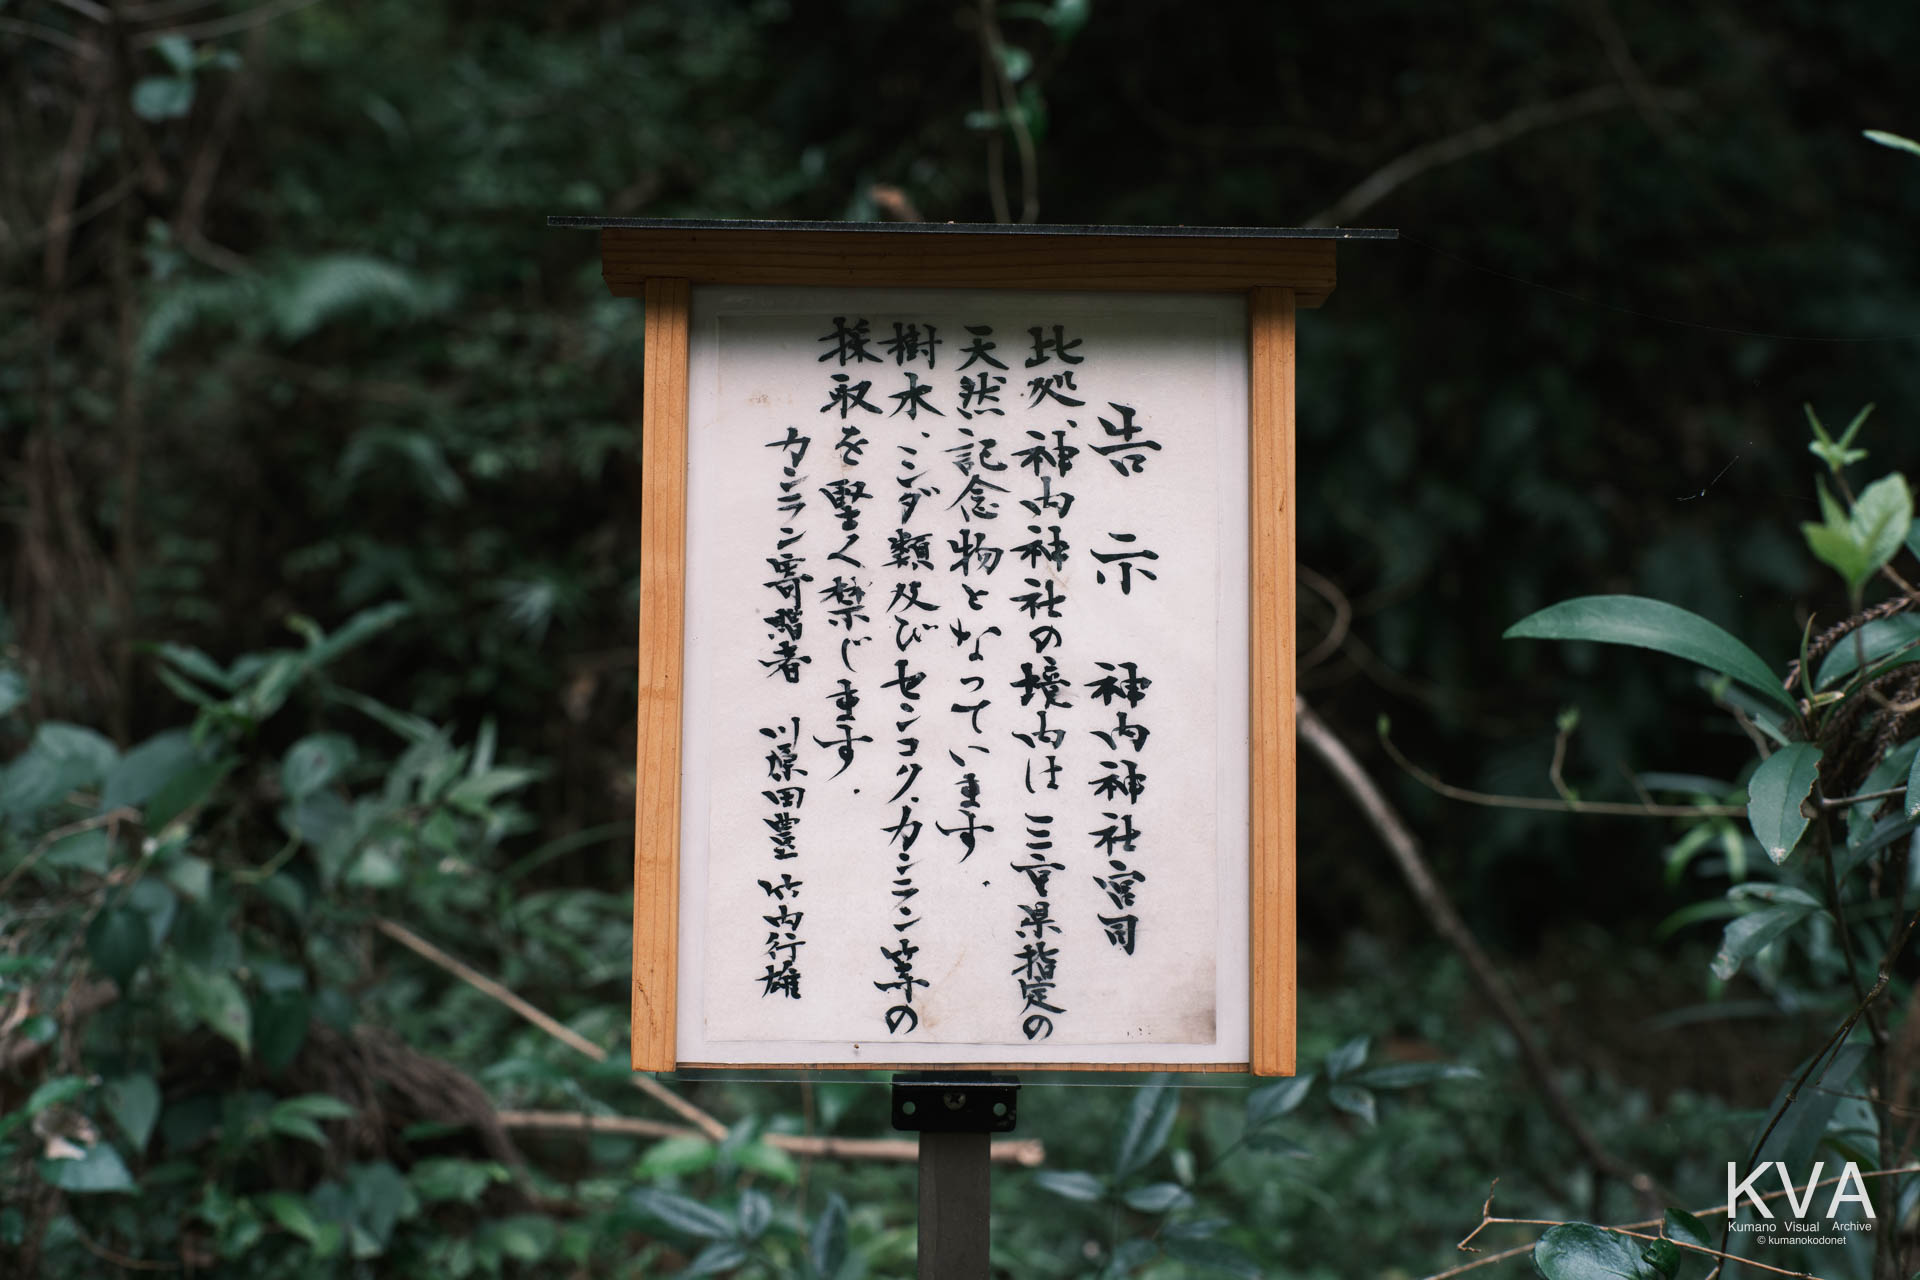 告示 神内神社宮司
此処、神内神社の境内は三重県指定の
天然記念物となっています.
樹木、シダ類及びセンコク、カンラン等の
採取を堅く禁じます.
カンラン寄贈者 川原田豊 竹内行雄
KVA
Kumano Visual Archive
© kumanokodonet